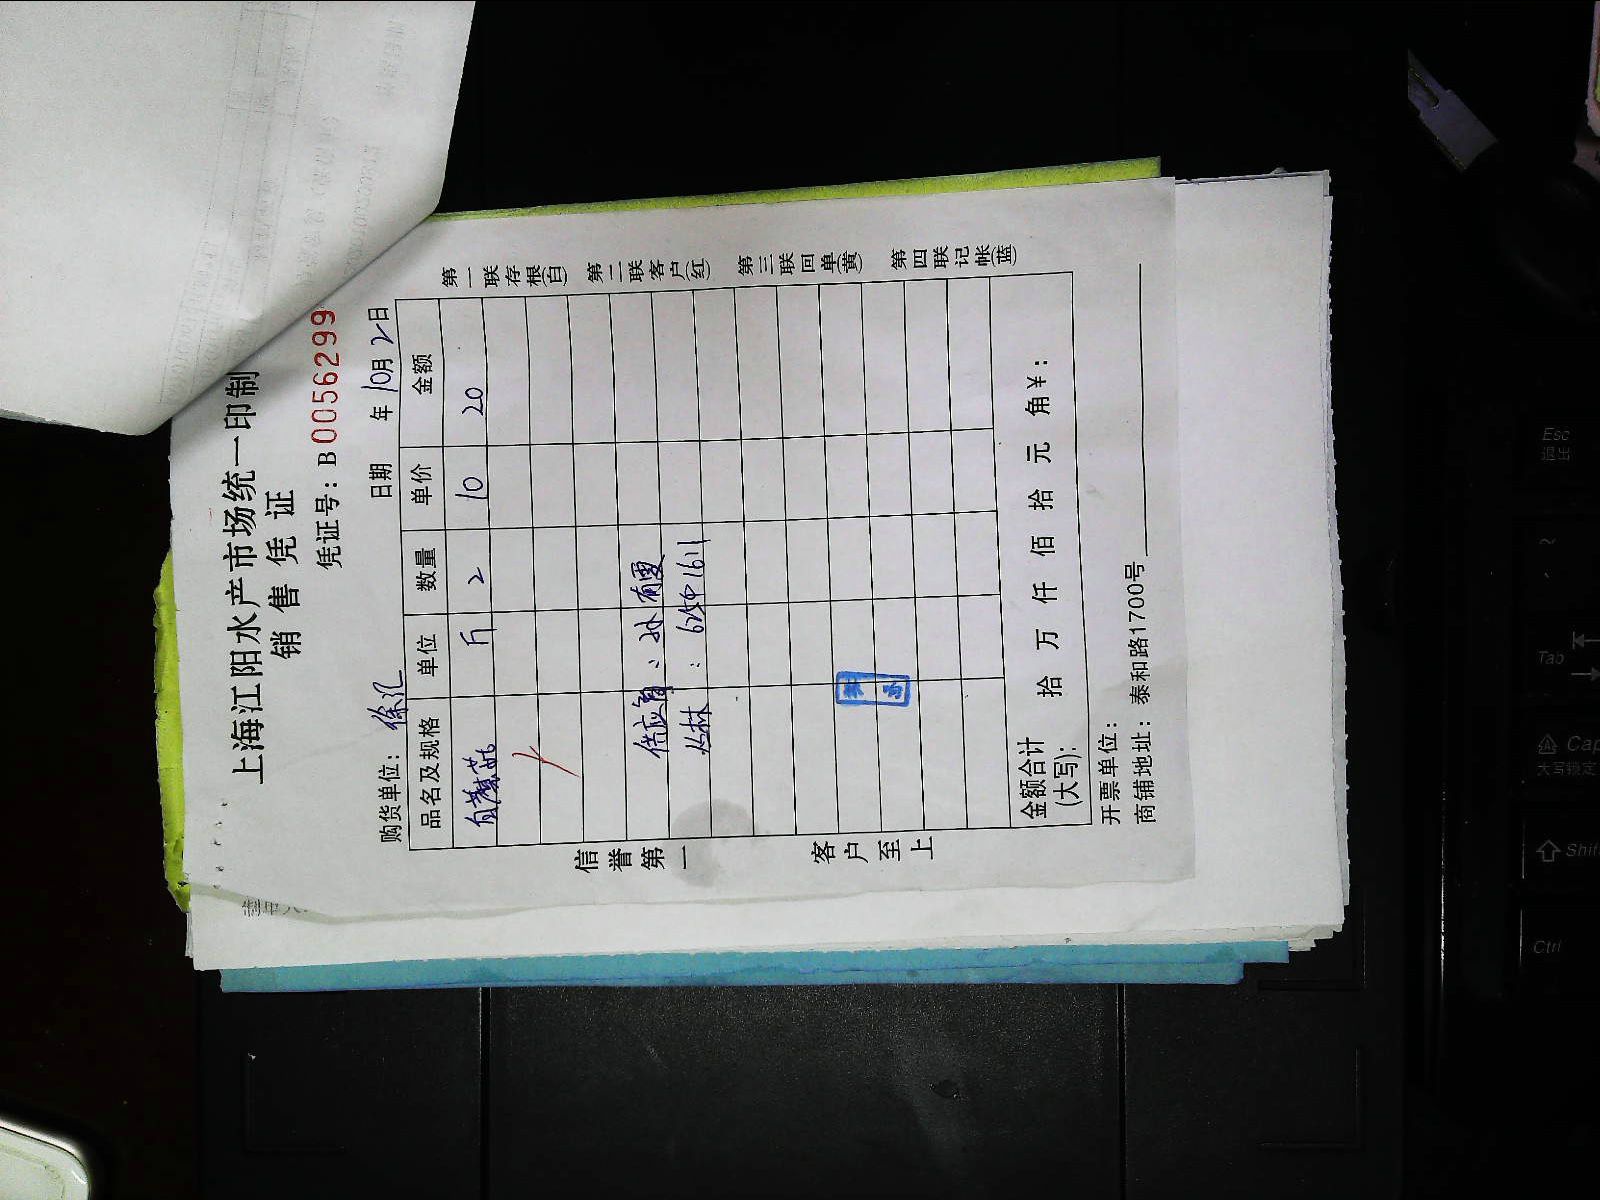 上海江阳水产市场统一印制
销售凭证
凭证号：B 0056299
购货单位：徐汇 日期 年 10月 2日
品名及规格 单位 数量 单价 金额
斤 2 10 20
供应商：孙雨雯
丛林：
金额合计(大写)： 拾 万 仟 佰 拾 元 角￥：
开票单位：
商铺地址：泰和路1700号
信誉第一 客户至上
第一联存根(白)
第二联客户(红)
第三联回单(黄)
第四联记帐(蓝)
Esc
Tab
Cap
大写锁定
Shif
Ctrl